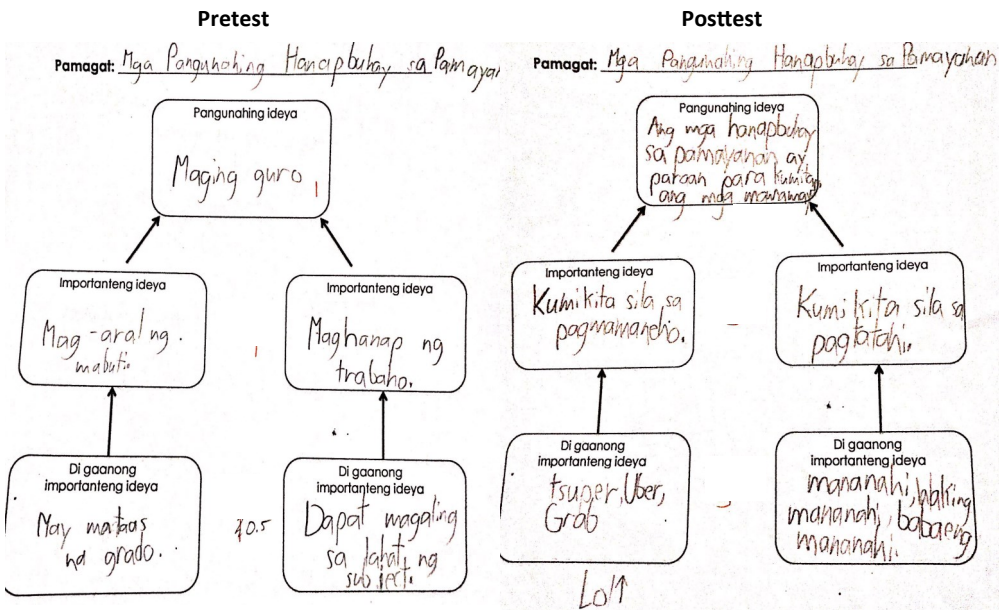 Pretest
Pamagat: Mga Pangunahing Hanapbuhay sa Pamayan
Pangunahing ideya
Maging guro
Importanteng ideya
Mag-aral ng.
mabuti.
Importanteng ideya
Maghanap ng
trabaho.
Di gaanong
importanteng ideya
May mataas
na grado.
0.5
Di gaanong
importanteng ideya
Dapat magaling
sa lahat ng
subject.
Posttest
Pamagat: Mga Pangunahing Hanapbuhay sa Pamayanan
Pangunahing ideya
Ang mga hanapbuhay
sa pamayanan ay
paraan para kumita
ang mga
Importanteng ideya
Kumikita sila sa
pagmamaneho.
Importanteng ideya
Kumikita sila sa
pagtatahi.
Di gaanong
importanteng ideya
tsuper, Uber,
Grab
Di gaanong
importanteng ideya
mananahi, lalaking
mananahi, babaeng
mananahi.